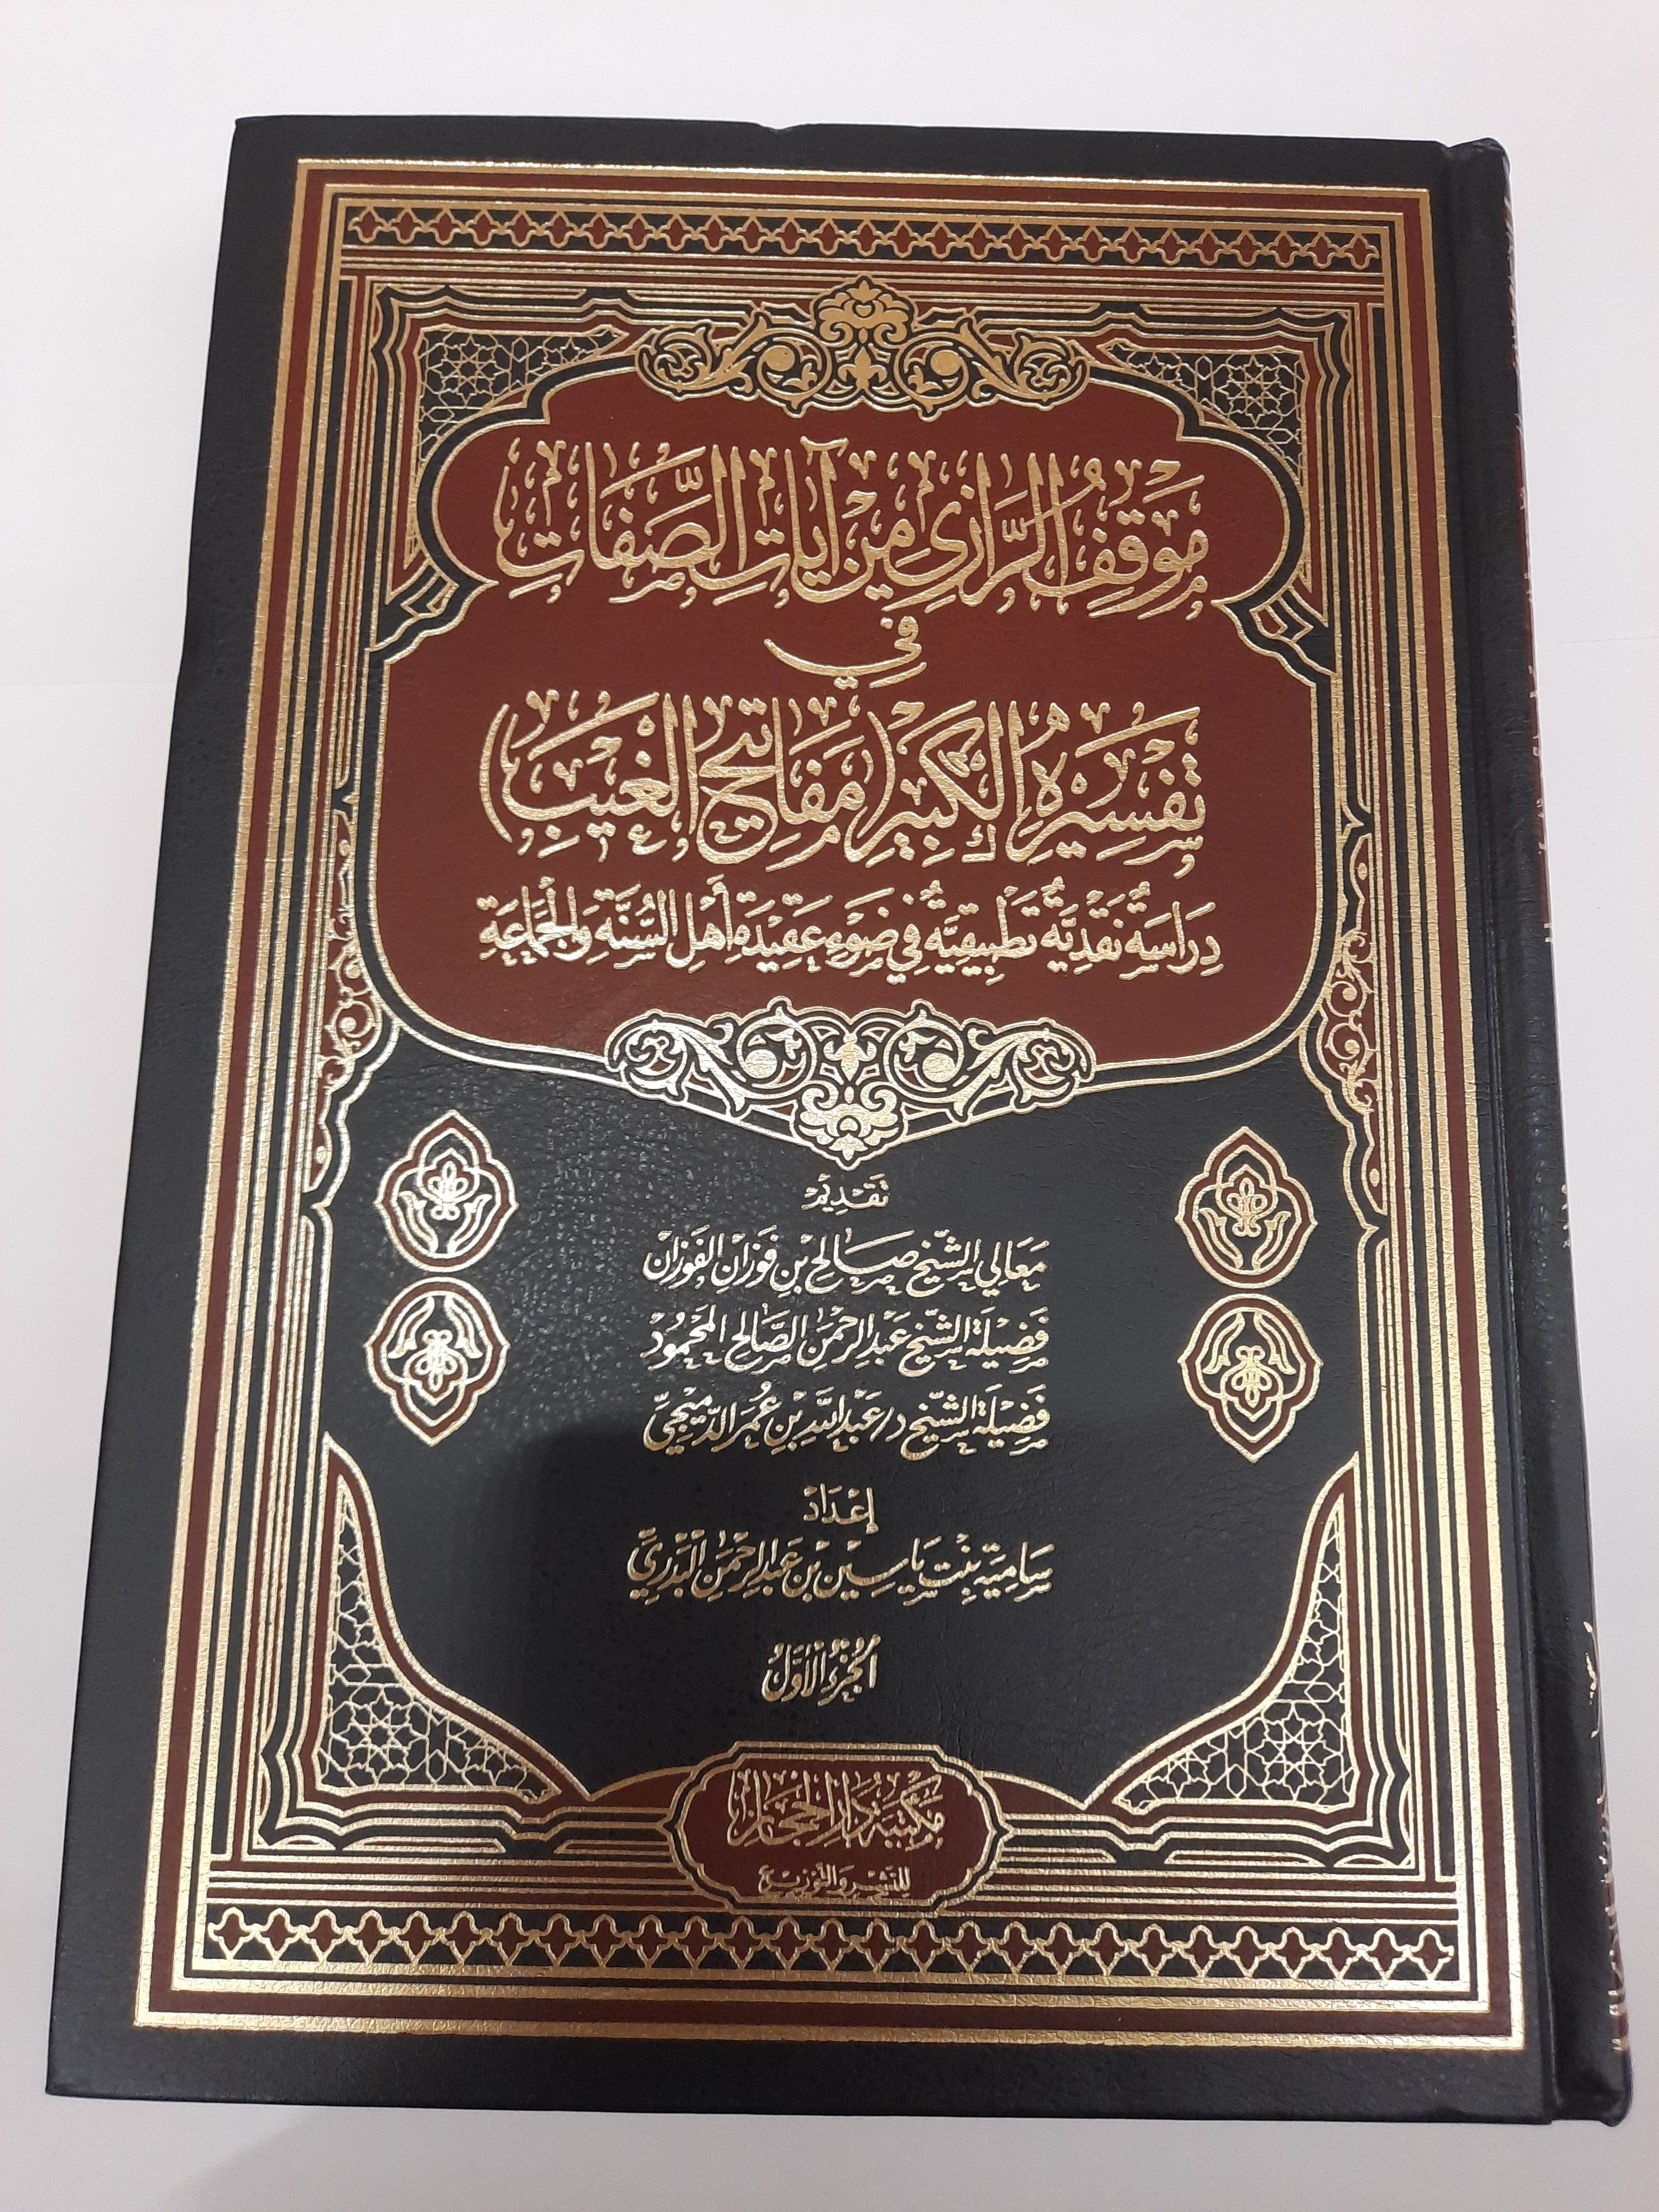 موقف الرازي من آيات الصفات
في
تفسيره الكبير (مفاتيح الغيب)
دراسة نقدية تطبيقية في ضوء عقيدة أهل السنة والجماعة
تقديم
معالي الشيخ صالح بن فوزان الفوزان
فضيلة الشيخ عبد الرحمن الصالح المحمود
فضيلة الشيخ د/ عبد الله بن عمر الدميجي
إعداد
سامية بنت ياسين بن عبد الرحمن البدري
الجزء الأول
مكتبة دار الحجاز
للنشر والتوزيع